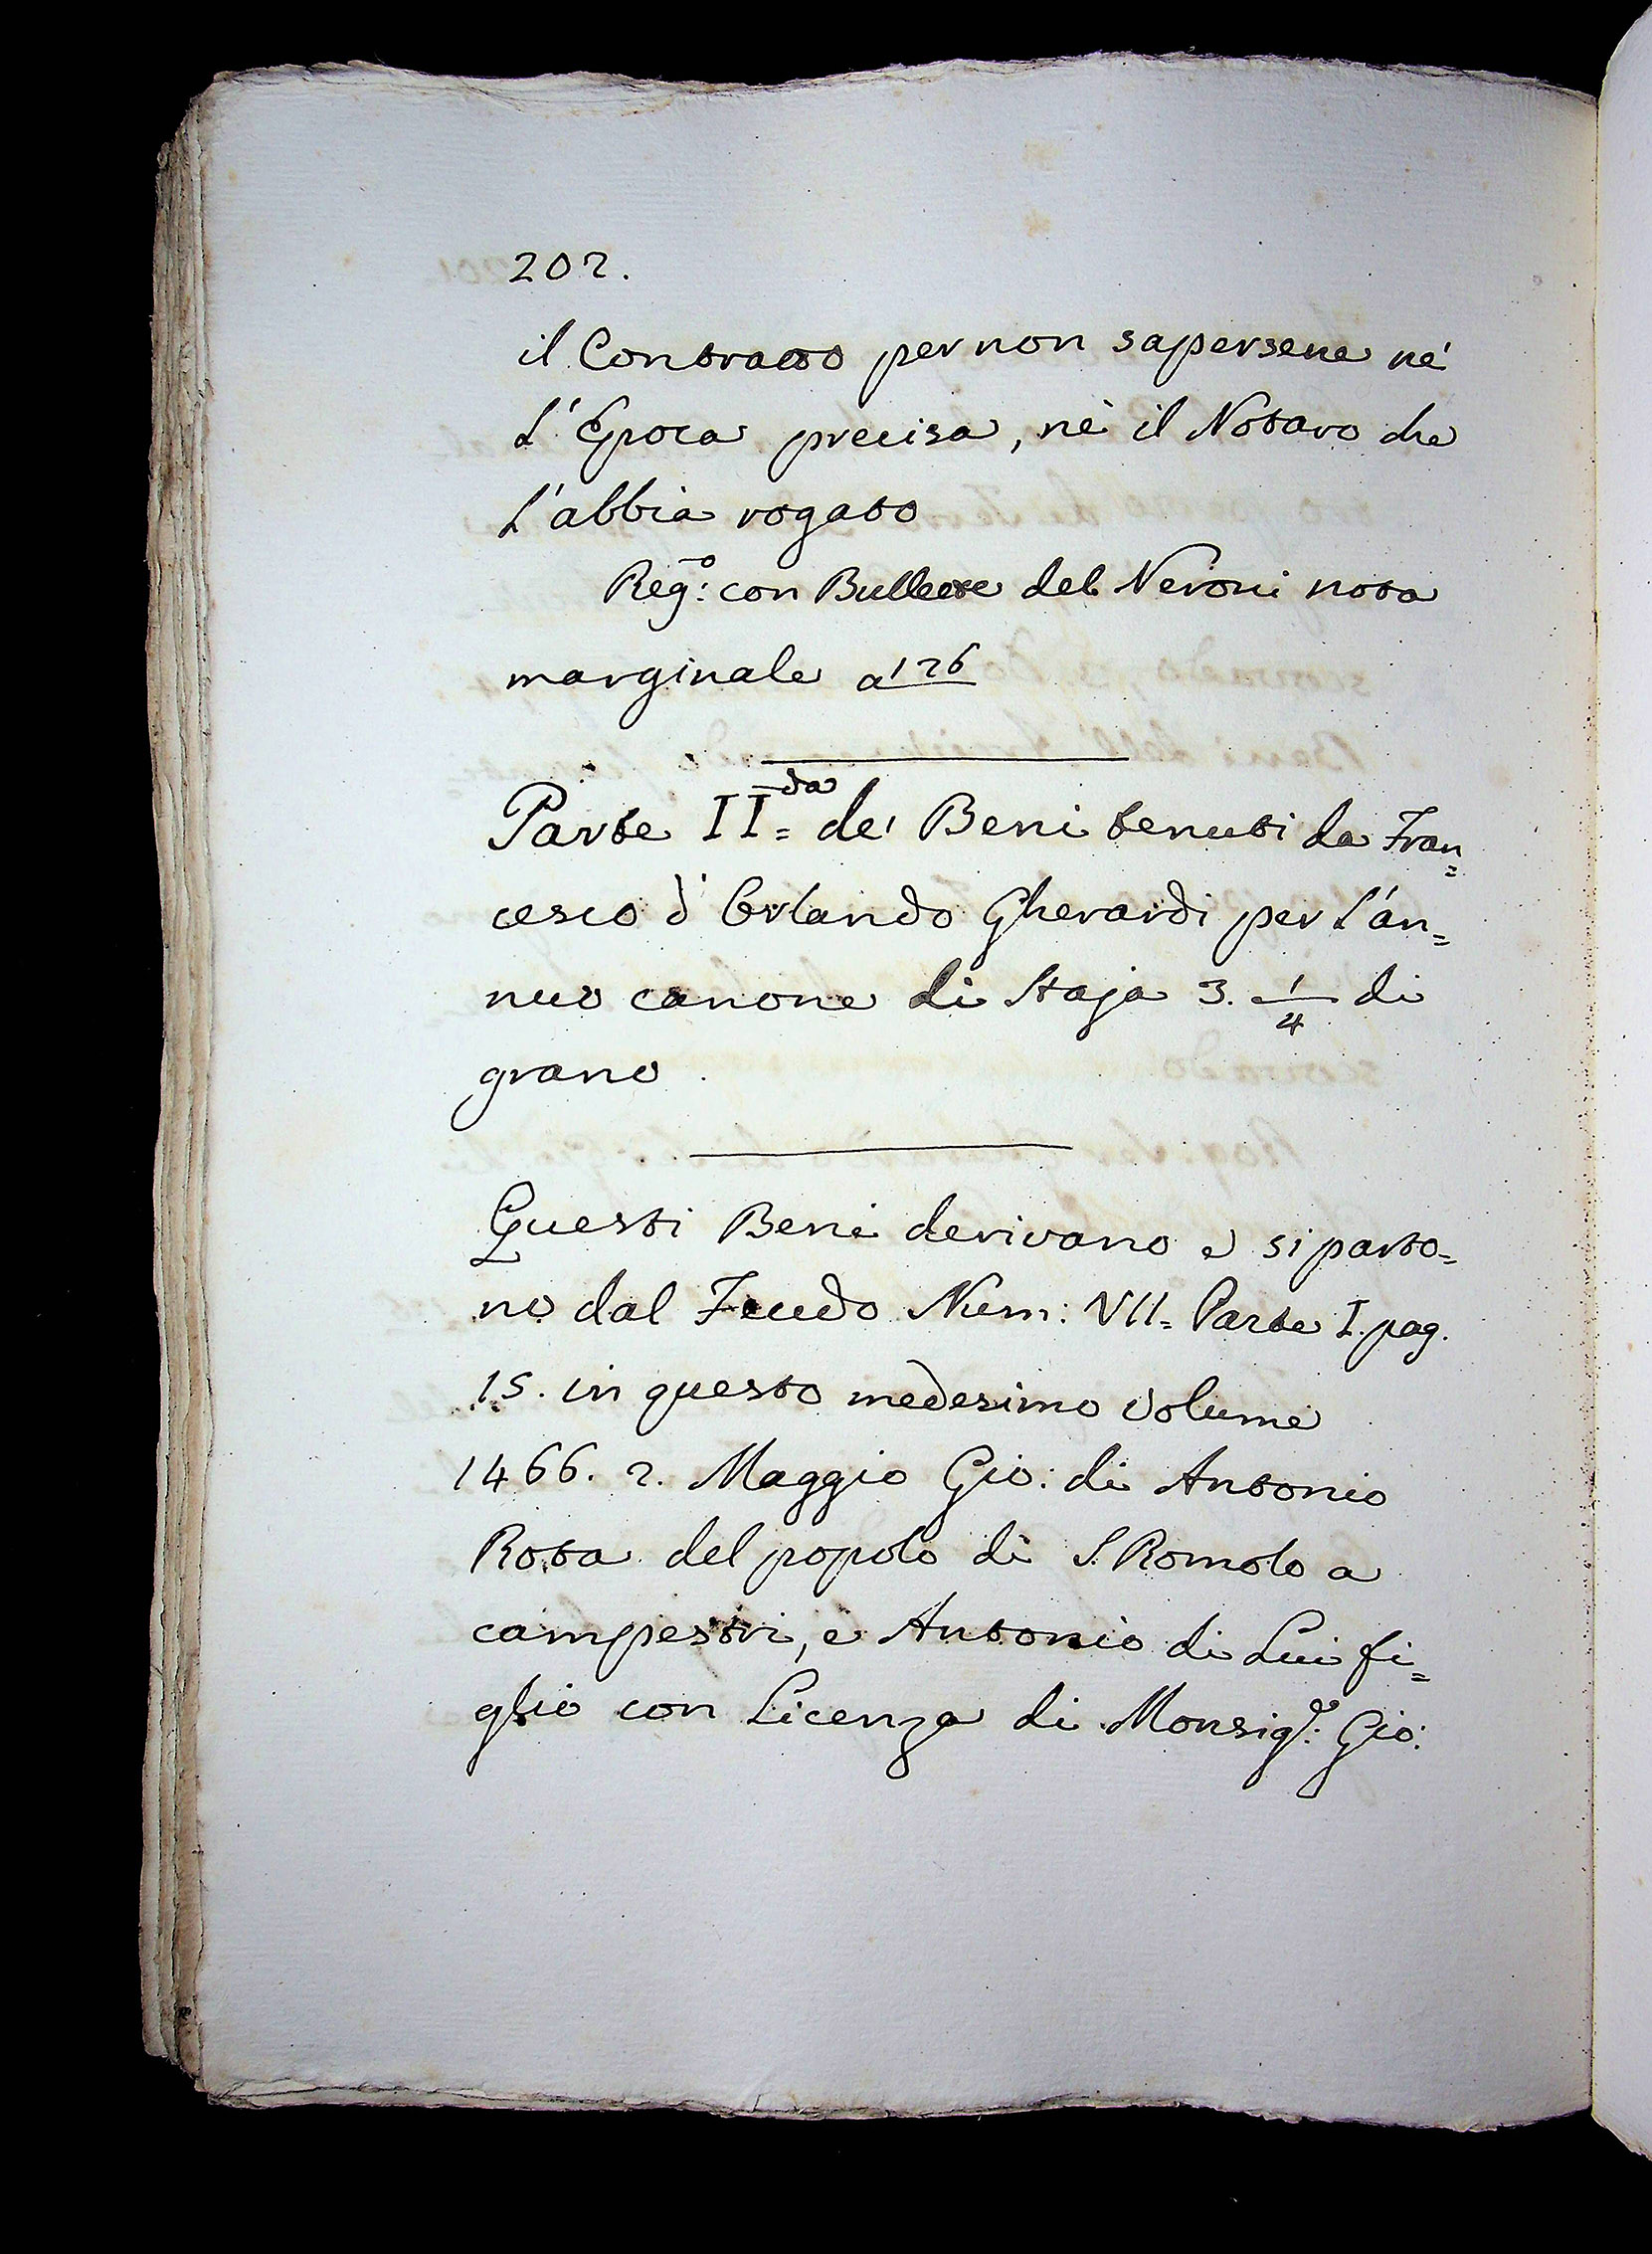 202.
il Contratto per non sapersene né
L'Epoca precisa, né il Notaro che
L'abbia rogato
Reg:º con Bullette del Neroni nota
marginale a 126
Parte IIda= de' Beni tenuti da Fran=
cesco d'Orlando Gherardi per L'an=
nuo canone di Staja 3. 1/4 di
grano.
Questi Beni derivano e si parto=
no dal Feudo Num: VII= Parte I. pag.
15. in questo medesimo volume
1466. 2. Maggio Gio: di Antonio
Rota del popolo di S. Romolo a
campestri, e Antonio di Lui fi=
glio con Licenza di Monsigr: Gio: